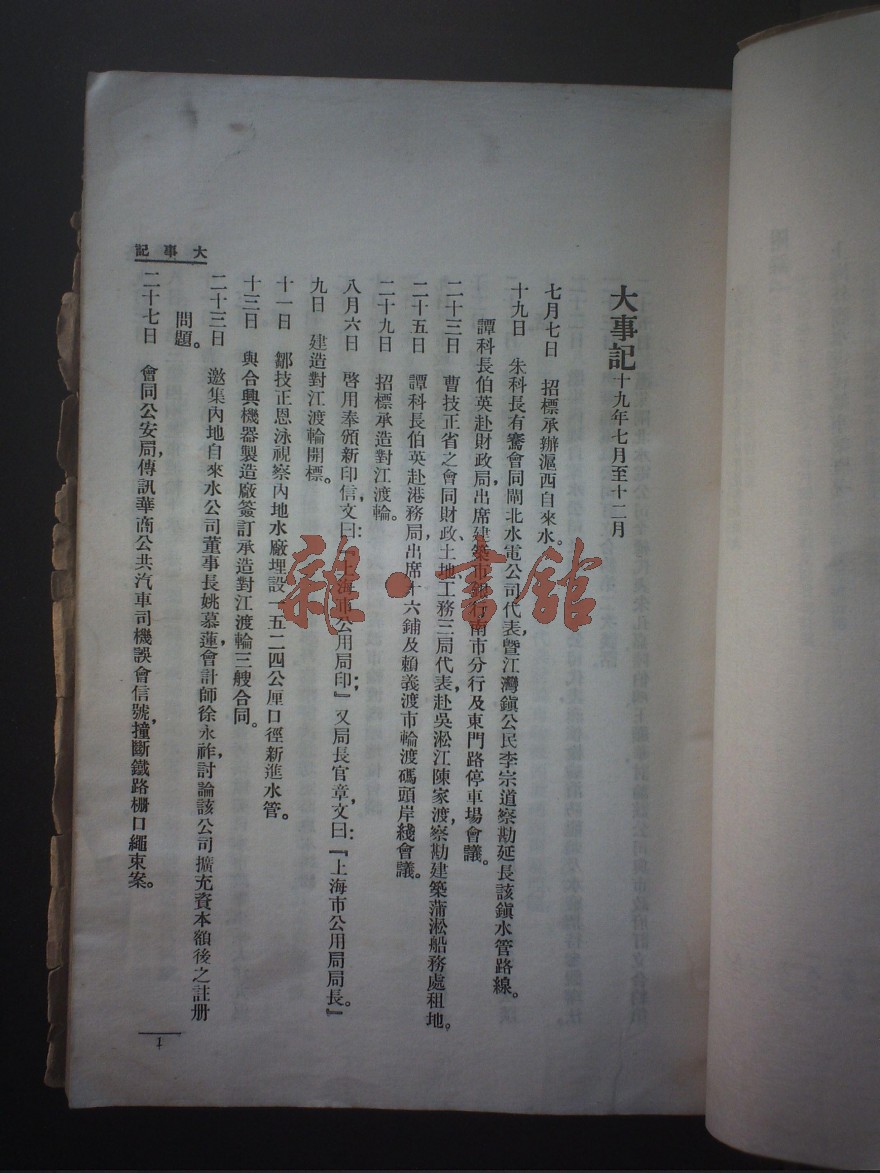 大事記 十九年七月至十二月
七月七日 招標承辦滬西自來水。
十九日 朱科長有騫會同閘北水電公司代表暨江灣鎭公民李宗道察勘延長該鎭水管路線。
譚科長伯英赴財政局出席建築市銀行南市分行及東門路停車場會議。
二十三日 曹技正省之會同財政、土地、工務三局代表,赴吳淞江陳家渡,察勘建築蒲淞船務處租地。
二十五日 譚科長伯英赴港務局出席十六鋪及賴義渡市輪渡碼頭岸綫會議。
二十九日 招標承造對江渡輪。
八月六日 啓用奉頒新印信文曰:『上海市公用局印』;又局長官章文曰:『上海市公用局局長。』
九日 建造對江渡輪開標。
十一日 鄒技正恩泳視察內地水廠埋設一五二四公厘口徑新進水管。
十三日 與合興機器製造廠簽訂承造對江渡輪三艘合同。
二十三日 邀集內地自來水公司董事長姚慕蓮會計師徐永祚討論該公司擴充資本額後之註册
問題。
二十七日 會同公安局,傳訊華商公共汽車司機誤會信號,撞斷鐵路柵口繩束案。
大事記
雜·書館